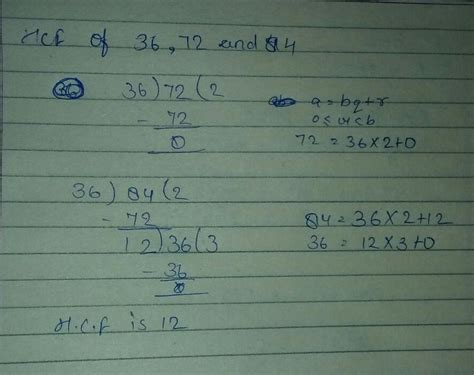 HCF of 36, 72 and 84
36 36) 72 (2 a = bq + r
- 72 0 ≤ r < b
0 72 = 36 × 2 + 0
36) 84 (2
- 72 84 = 36 × 2 + 12
12) 36 (3 36 = 12 × 3 + 0
- 36
0
H.C.F is 12